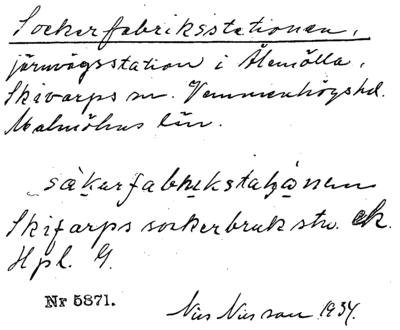 Sockerfabriksstationen,
järnvägsstation i Ålemölla,
Skivarps sn. Vemmenhögs hd.
Malmöhus län.
säkerfabrikstatjånen
Skifarps sockerbruk stn. ek.
Hpl. G.
Nr 5871.
Nils Nilsson 1934.